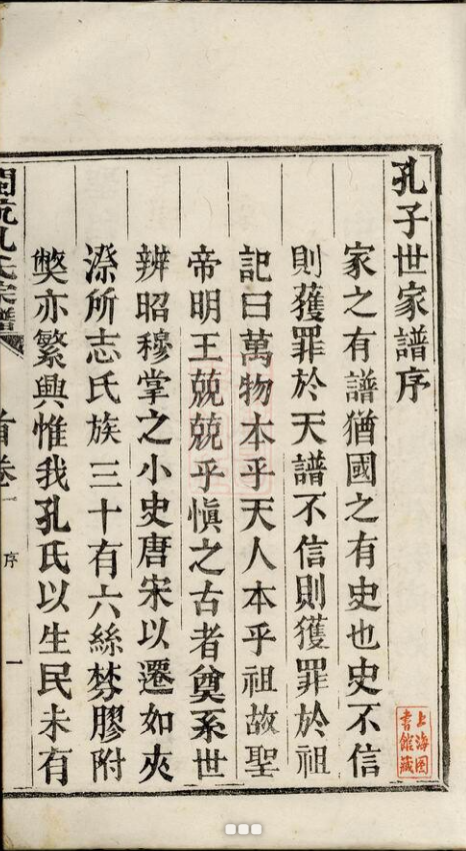 孔子世家譜序
家之有譜猶國之有史也史不信
則獲罪於天譜不信則獲罪於祖
記曰萬物本乎天人本乎祖故聖
帝明王兢兢乎愼之古者奠系世
辨昭穆掌之小史唐宋以遷如夾
漈所志氏族三十有六絲棼膠附
獘亦繁興惟我孔氏以生民未有
孔氏宗譜
首卷一
序
一
上海图
書館藏